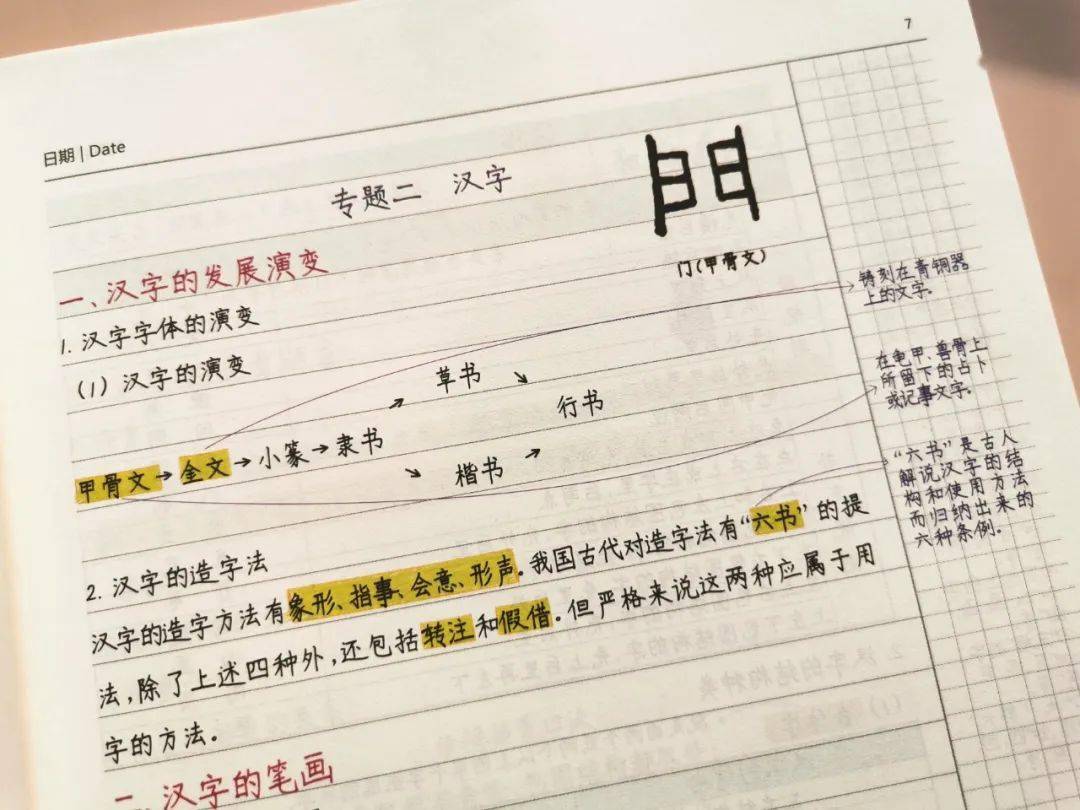 7
日期 | Date
专题二 汉字
門
门(甲骨文)
一、汉字的发展演变
1. 汉字字体的演变
(1) 汉字的演变
草书 ↘
↗ 行书
甲骨文→金文→小篆→隶书
↘ 楷书 ↗
2. 汉字的造字法
汉字的造字方法有象形、指事、会意、形声。我国古代对造字法有“六书”的提
法,除了上述四种外,还包括转注和假借。但严格来说这两种应属于用
字的方法。
二、汉字的笔画
铸刻在青铜器
上的文字。
在龟甲、兽骨上
所留下的占卜
或记事文字。
“六书”是古人
解说汉字的结
构和使用方法
而归纳出来的
六种条例。